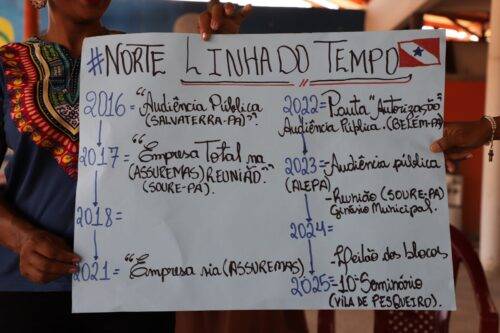 #NORTE LINHA DO TEMPO
2016= "Audiência Pública
(SALVATERRA-PA)".
2017= "Empresa Total na
(ASSUREMAS) REUNIÃO."
(SOURE-PA).
2018=
2021= "Empresa sia (ASSUREMAS)
2022= Pauta "Autorização"
Audiência Pública. (BELÉM-PA)
2023= Audiência pública
(ALEPA)
-Reunião (SOURE-PA)
Ginásio Municipal.
2024=
-Leilão dos blocos
2025= 1º Seminário
(VILA DE PESQUEIRO).